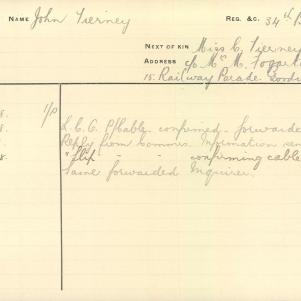 NAME John Tierney REG. &C. 34th B
NEXT OF KIN Miss C. Tierney
ADDRESS c/o Mrs M. Fogart
15. Railway Parade.
8. 1/P
L.C.C. P/Cable confirmed. forwarde
Reply from Commrs. Information
8. " flip - - confirming cable
Same forwarded Inquirer.